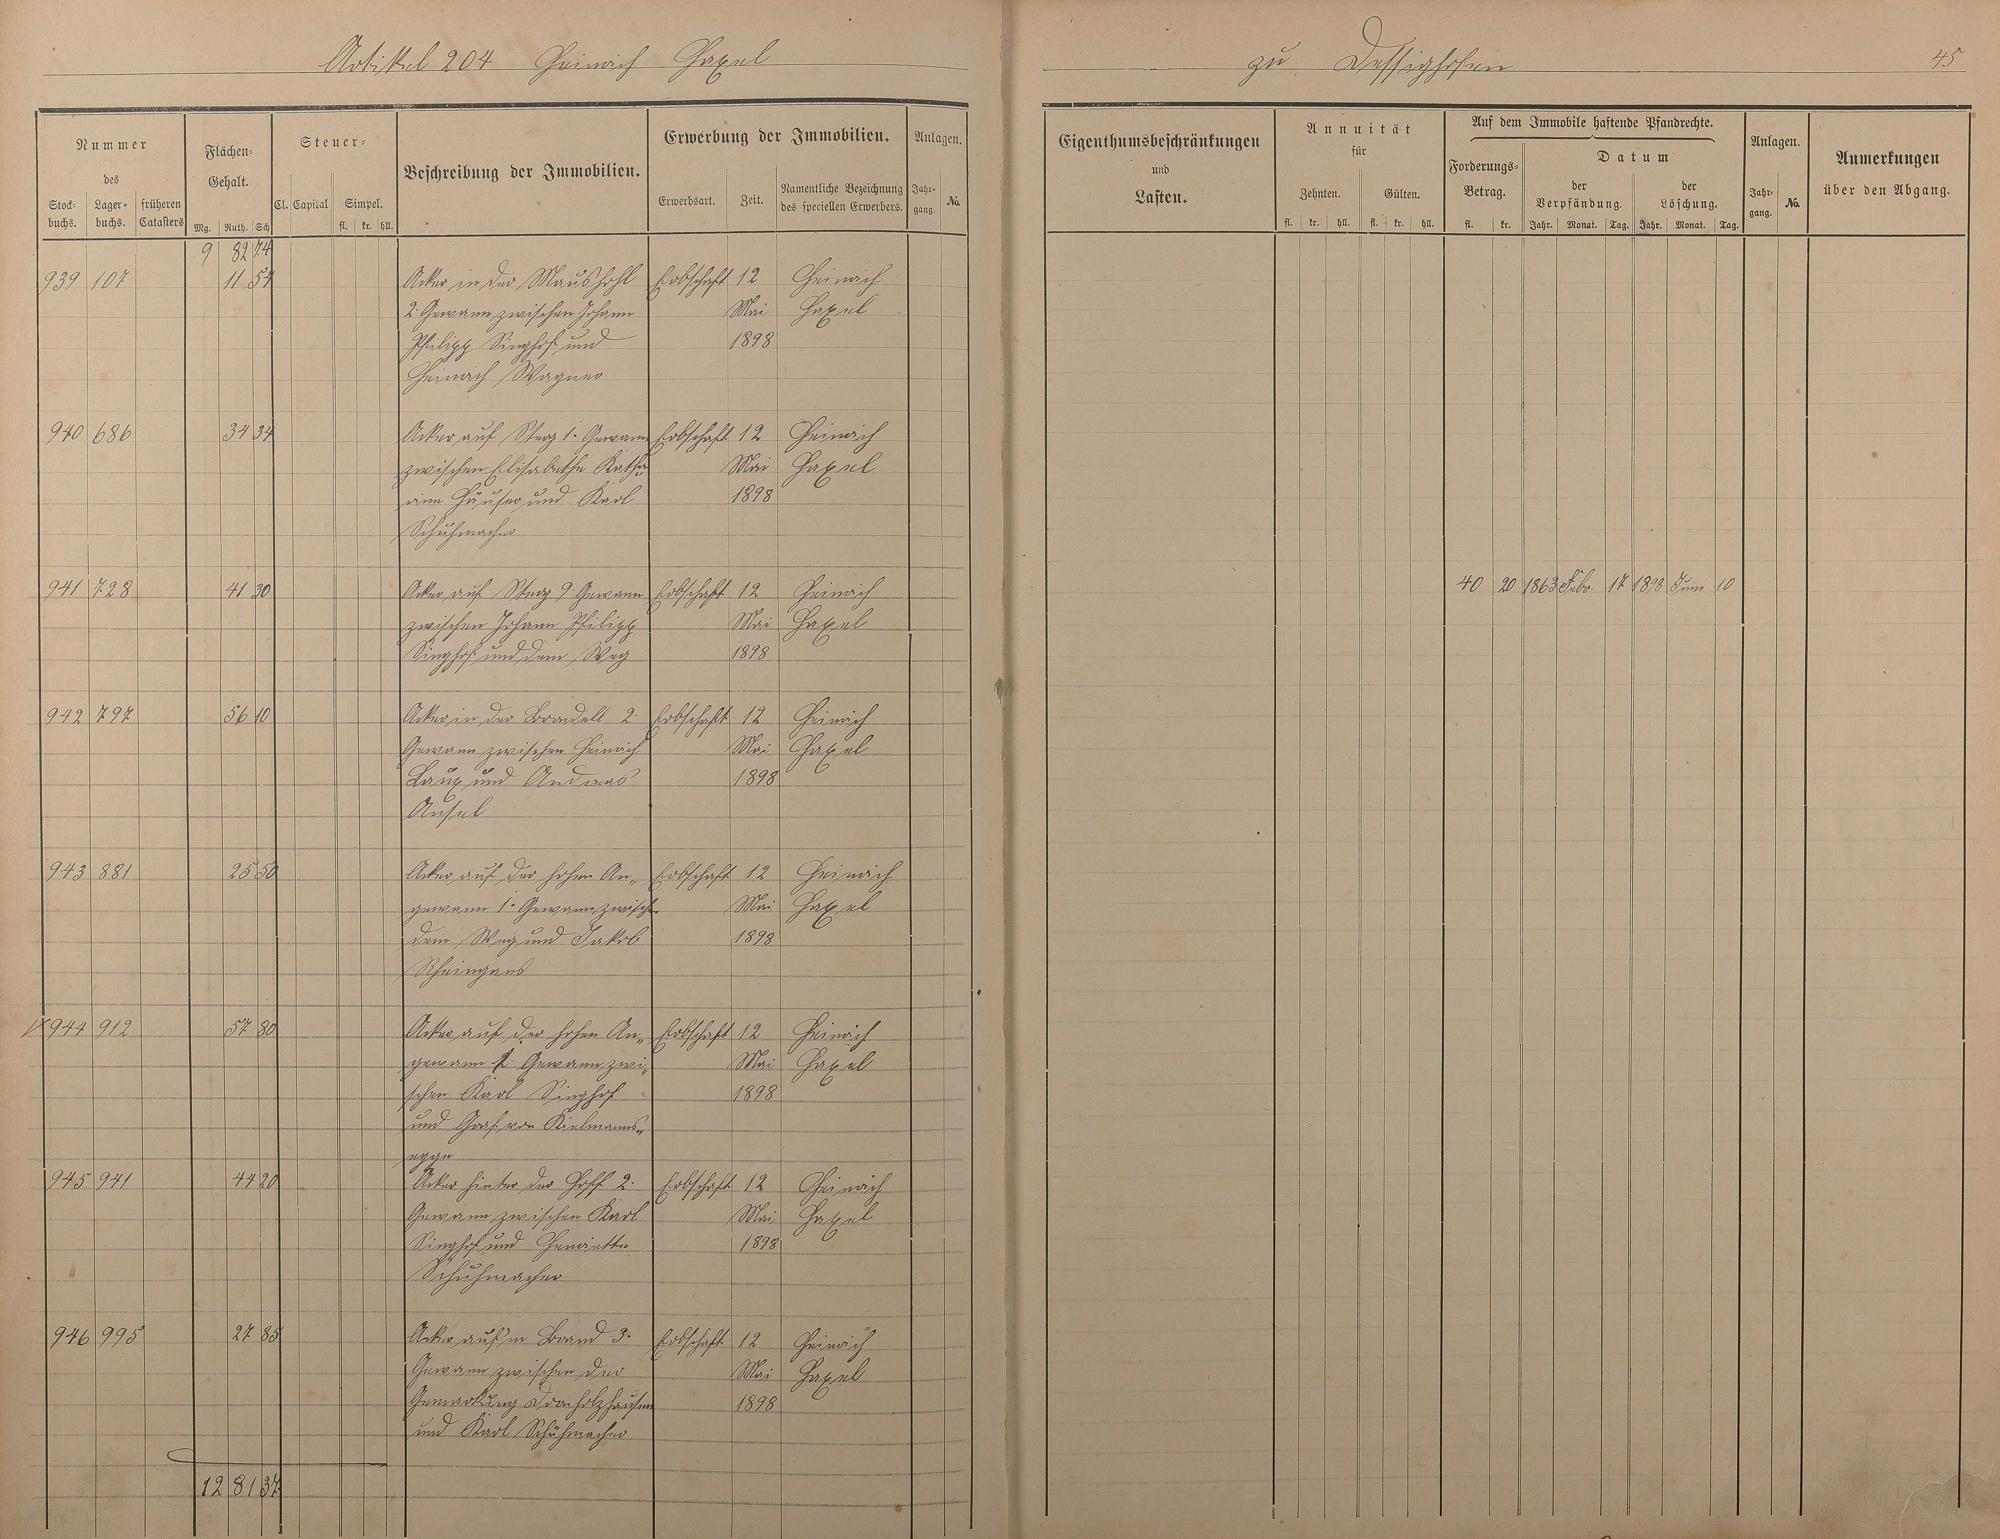 Artikel 204 Heinrich Haxel
zu Dessighofen
45
Nummer
des
Stock-
buchs.
Lager-
buchs.
früheren
Catasters
Flächen-
Gehalt.
Mg. Ruth. Sch
Steuer-
Cl. Capital Simpel.
fl. kr. hll.
Beschreibung der Immobilien.
Erwerbung der Immobilien.
Erwerbsart. Zeit.
Namentliche Bezeichnung
des speciellen Erwerbers.
Anlagen.
Jahr-
gang.
No.
Eigenthumsbeschränkungen
und
Lasten.
Annuität
für
Zehnten. Gülten.
fl. kr. hll. fl. kr. hll.
Auf dem Immobile haftende Pfandrechte.
Forderungs-
Betrag.
fl. kr.
Datum
der
Verpfändung.
der
Löschung.
Jahr. Monat. Tag. Jahr. Monat. Tag.
Anlagen.
Jahr-
gang.
No.
Anmerkungen
über den Abgang.
9 82 74
939 107 11 54 Acker in der Maushohl Erbschaft 12 Heinrich
2. Gewann zwischen Johann Mai Haxel
Philipp Singhof und 1898
Heinrich Wagner
940 686 34 34 Acker auf Sterz 1. Gewann Erbschaft 12 Heinrich
zwischen Elisabethe Katha Mai Haxel
rine Häuser und Karl 1898
Schuhmacher
941 728 41 30 Acker auf Sterz 9. Gewann Erbschaft 12 Heinrich 40 20 1863 Febr. 17 1898 Juni 10
zwischen Johann Philipp Mai Haxel
Singhof und dem Weg 1898
942 797 56 10 Acker in der Brandell 2. Erbschaft 12 Heinrich
Gewann zwischen Heinrich Mai Haxel
Laux und Andreas 1898
Ausel
943 881 25 50 Acker auf der hohen An„ Erbschaft 12 Heinrich
gewann 1. Gewann zwischen Mai Haxel
dem Weg und Jakob 1898
Rheingans
944 912 57 80 Acker auf der hohen An„ Erbschaft 12 Heinrich
gewann 2. Gewann zwi„ Mai Haxel
schen Karl Singhof 1898
und Graf von Kielmanns„
egge
945 941 44 20 Acker hinter der Hoff 2. Erbschaft 12 Heinrich
Gewann zwischen Karl Mai Haxel
Singhof und Henriette 1898
Schuhmacher
946 995 27 85 Acker auf'm Brand 3. Erbschaft 12 Heinrich
Gewann zwischen der Mai Haxel
Gemarkung Dornholzhausen 1898
und Karl Schuhmacher
12 81 37